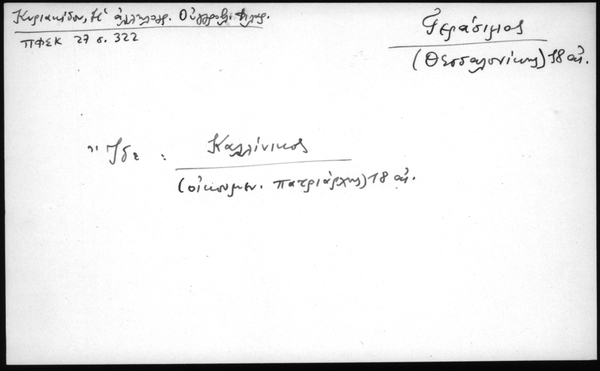 Κυριακίδου, Η ἀλληλογρ. Οὐγγροβλ.
ΠΦΣΚ 27 σ. 322
Γεράσιμος
(Θεσσαλονίκης) 18 αἰ.
Ἴδε : Καλλίνικος
(οἰκουμεν. πατριάρχης) 18 αἰ.